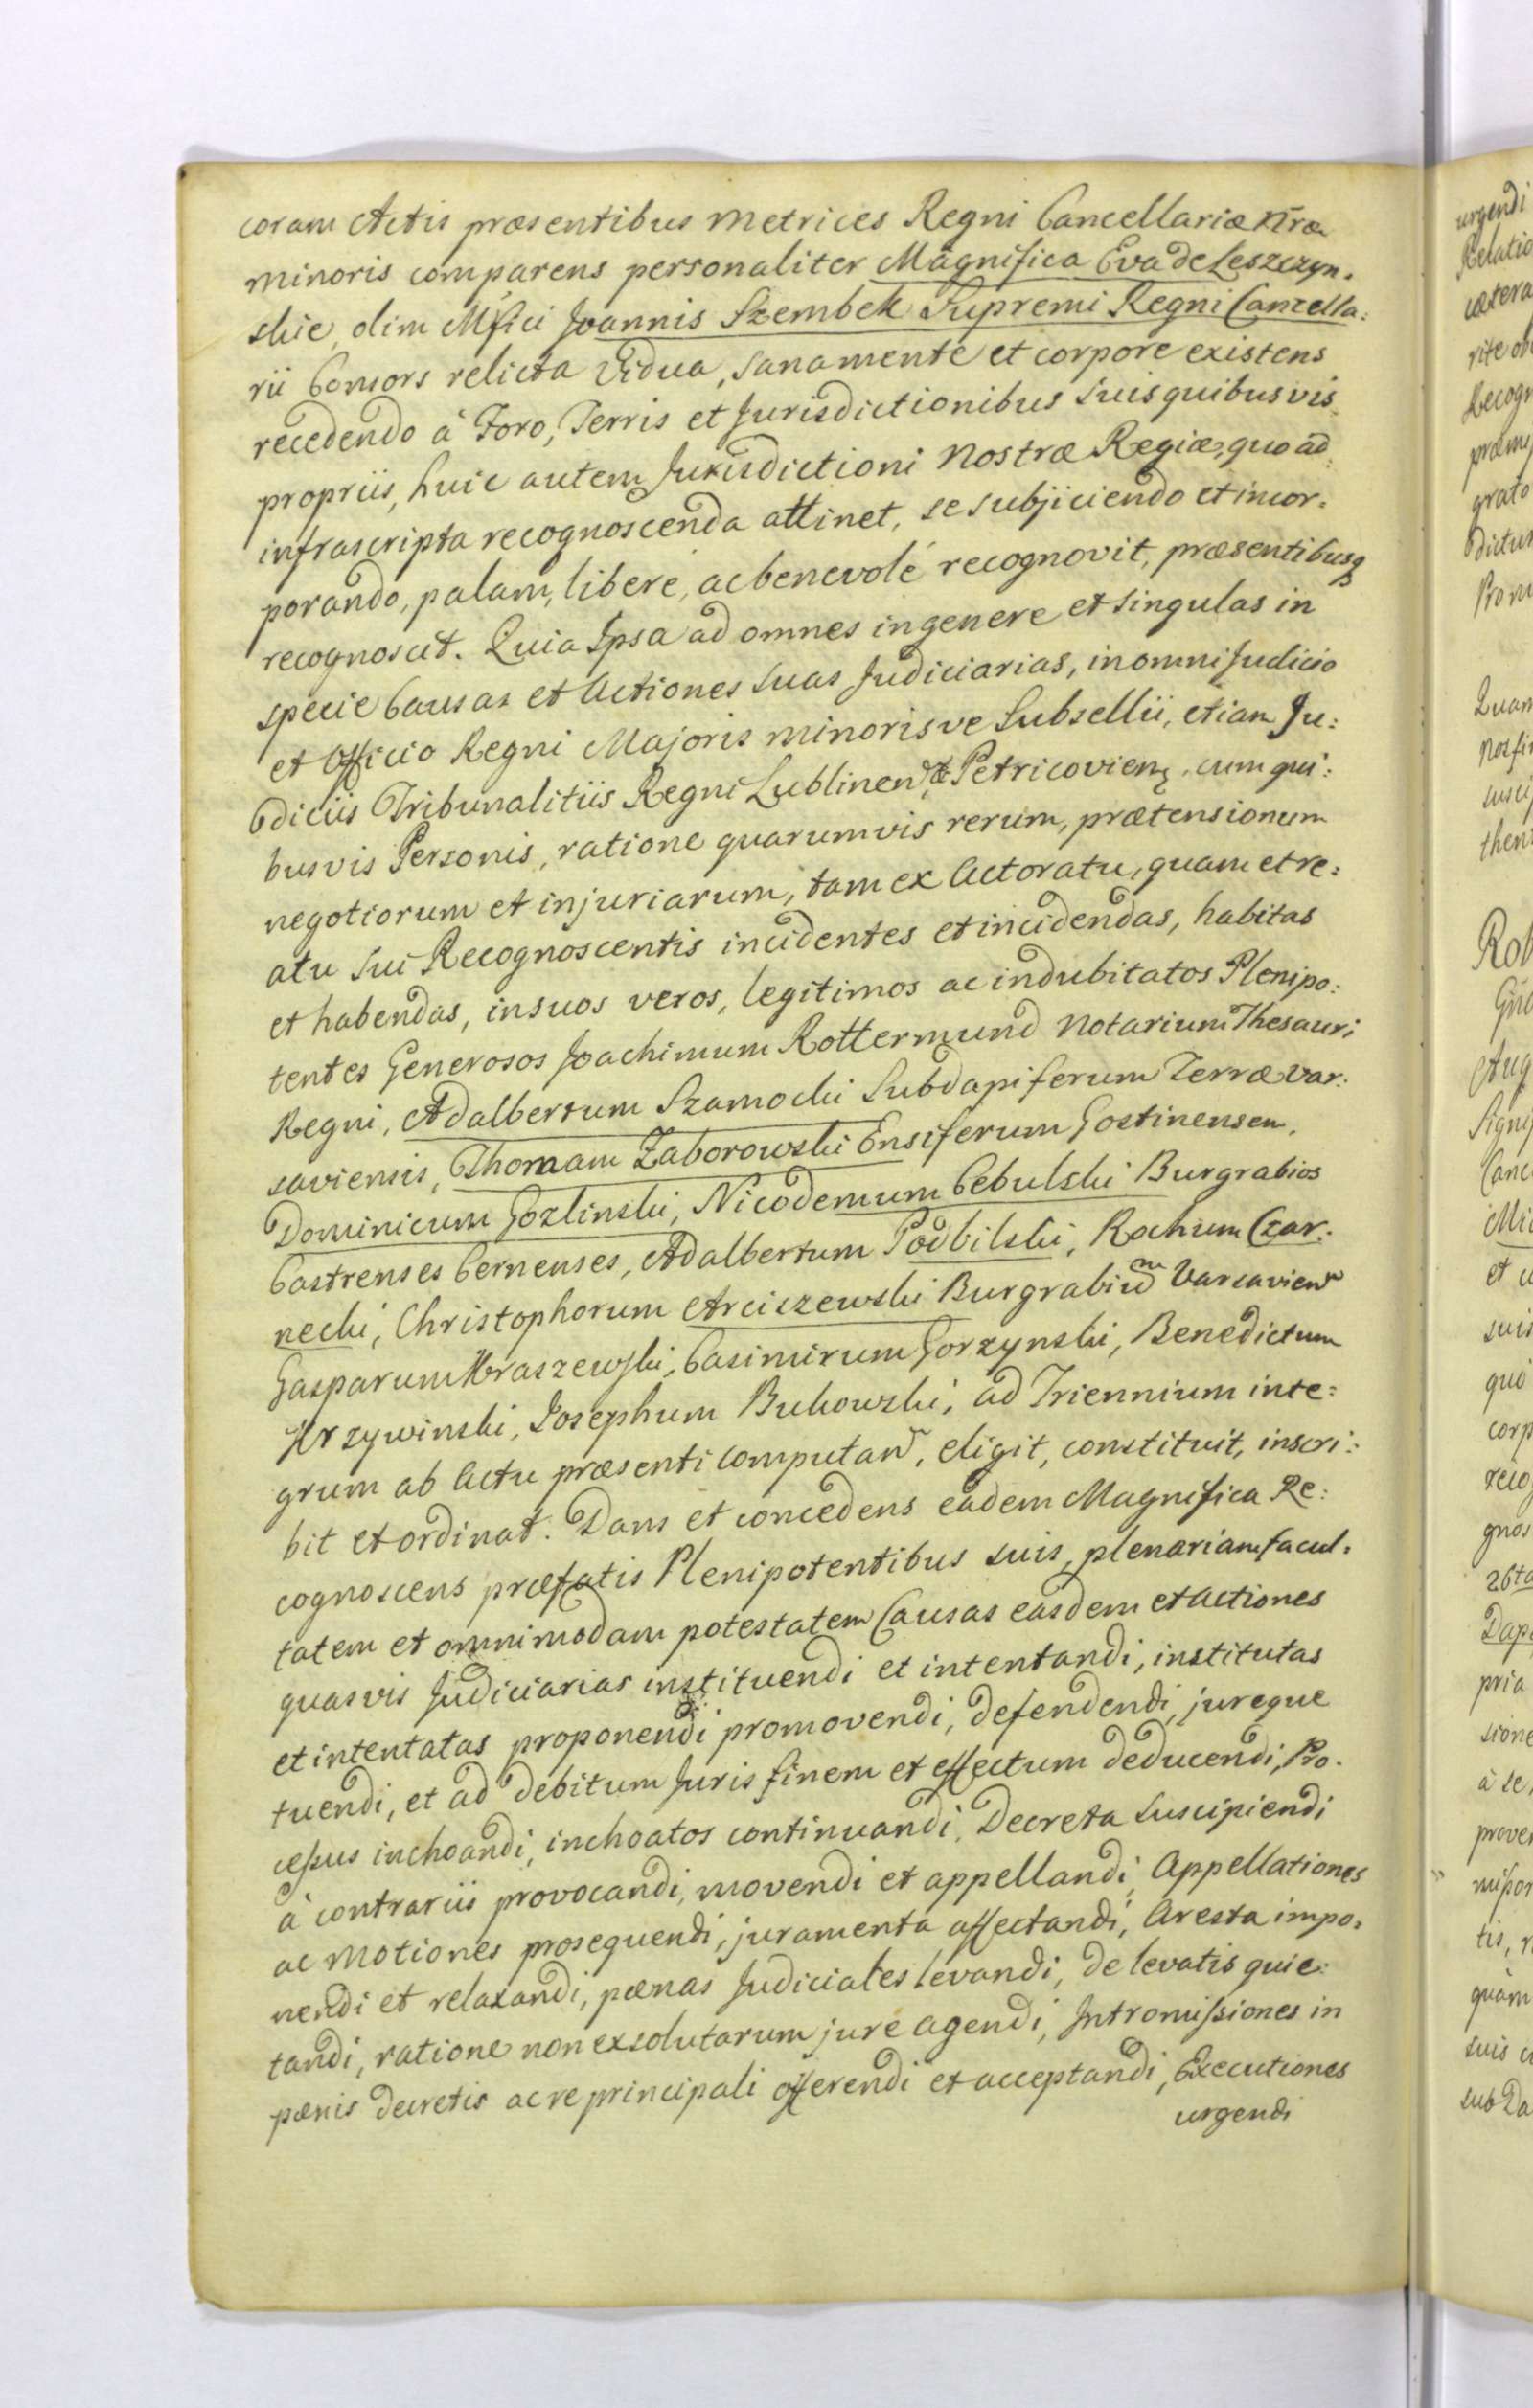 coram Actis præsentibus Metrices Regni Cancellariæ Nræ
minoris comparens personaliter Magnifica Eva de Leszczyn-
skie, olim Mfici Joannis Szembek Supremi Regni Cancella:
rii Consors relicta Vidua, sana mente et corpore existens
recedendo à Foro, Terris et Jurisdictionibus suis quibusvis
propriis, huic autem Jurisdictioni Nostræ Regiæ, quo ad
infrascripta recognoscenda attinet, se subjiciendo et incor-
porando, palam, libere, ac benevolé recognovit, præsentibusq
recognoscit. Quia Ipsa ad omnes in genere et singulas in
specie Causas et Actiones suas Judiciarias, in omni Judicio
et Officio Regni Majoris minorisve Subsellii, etiam Ju:
diciis Tribunalitiis Regni Lublinen, et Petricovien, cum qui:
busvis Personis, ratione quarumvis rerum, prætensionum
negotiorum et injuriarum, tam ex Actoratu, quam et re:
atu sui Recognoscentis incidentes et incidendas, habitas
et habendas, in suos veros, legitimos ac indubitatos Plenipo:
tentes Generosos Joachimum Rottermund Notarium Thesauri
Regni, Adalbertum Szamocki Subdapiferum Terræ Var:
saviensis, Thomam Zaborowski Ensiferum Gostinensem,
Dominicum Gozlinski, Nicodemum Cebulski Burgrabios
Castrenses Cernenses, Adalbertum Podbilski, Rochum Czar:
necki, Christophorum Arciszewski Burgrabium Varsavien
Gasparum Kraszewski, Casimirum Gorzynski, Benedictum
Krzywinski, Josephum Bukowski, ad Triennium inte:
grum ab Actu præsenti computan, eligit, constituit, inscri:
bit et ordinat. Dans et concedens eadem Magnifica Re:
cognoscens præfatis Plenipotentibus suis, plenariam facul-
tatem et omnimodam potestatem Causas easdem et actiones
quasvis Judiciarias instituendi et intentandi, institutas
et intentatas proponendi promovendi, defendendi, jureque
tuendi, et ad debitum Juris finem et effectum deducendi, Pro-
cessus inchoandi, inchoatos continuandi, Decreta suscipiendi
à contrariis provocandi, movendi et appellandi, Appellationes
ac Motiones prosequendi, juramenta affectandi, Aresta impo-
nendi et relaxandi, pænas Judiciales levandi, de levatis quie:
tandi, ratione non exsolutarum jure agendi, Intromissiones in
pænis decretis ac re principali offerendi et acceptandi, Executiones
urgendi